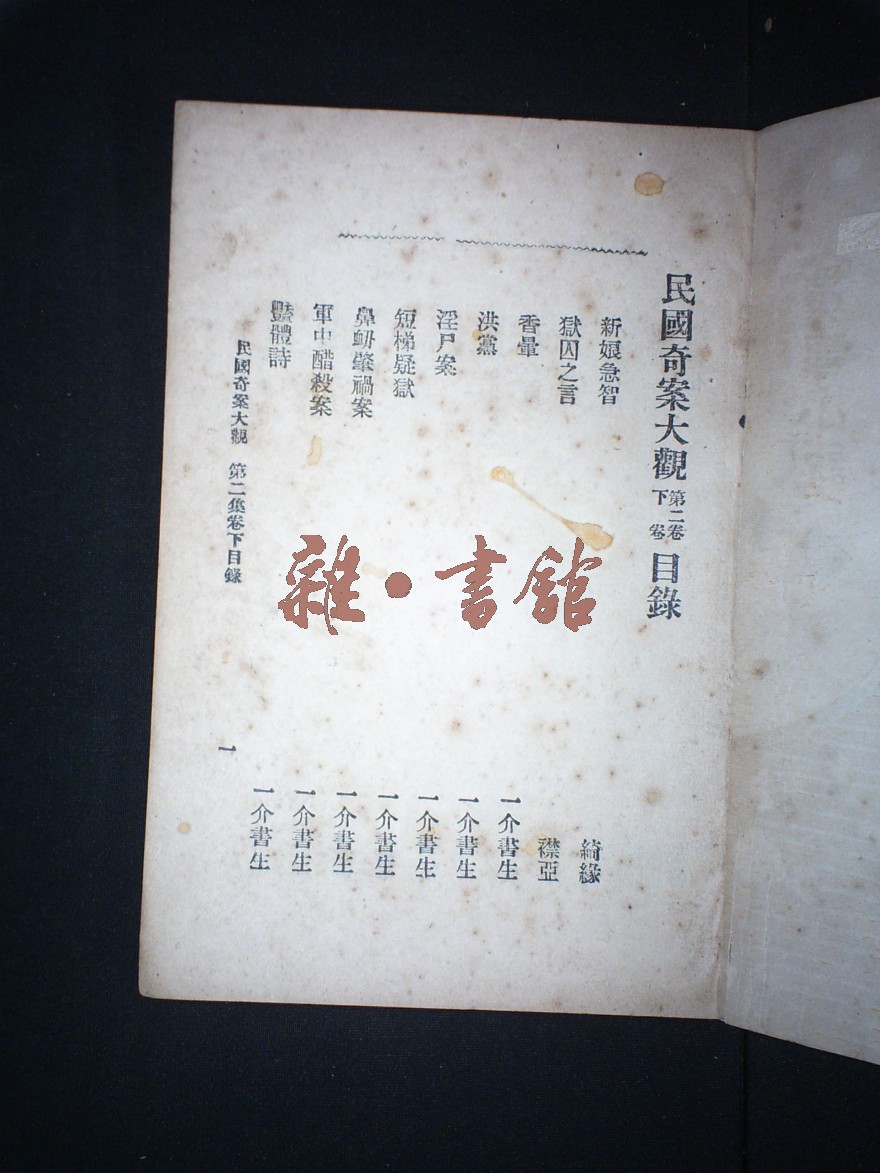 民國奇案大觀 第二卷下卷 目錄
新娘急智 綺緣
獄囚之言 襟亞
香暈 一介書生
洪黨 一介書生
淫尸案 一介書生
短梯疑獄 一介書生
鼻衂肇禍案 一介書生
軍中醋殺案 一介書生
豔體詩 一介書生
民國奇案大觀 第二集卷下目錄 一
雜·書館